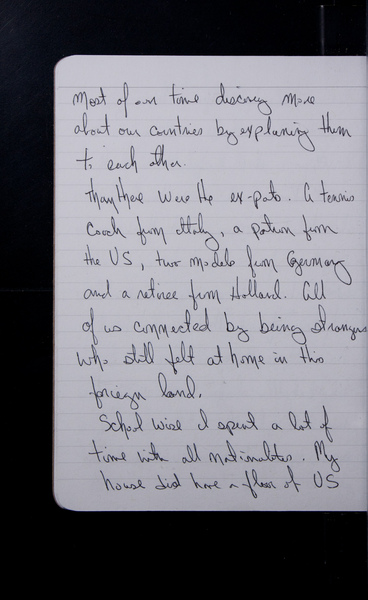 Most of our time discovering more
about our countries by explaining them
to each other.
Then there were the ex-pats. A tennis
coach from Italy, a patron from
the US, two models from Germany
and a retiree from Holland. All
of us connected by being strangers
who still felt at home in this
foreign land.
School wise I spent a lot of
time with all nationalities. My
house did have a floor of US